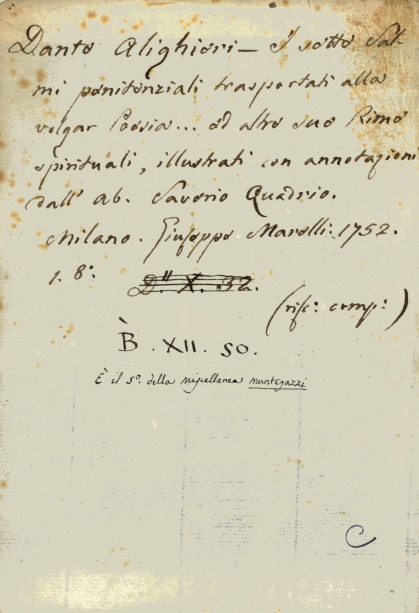 Dante Alighieri — I sette Sal-
mi penitenziali trasportati alla
volgar Poesia... ed altre sue Rime
spirituali, illustrati con annotazioni
dall' ab. Saverio Quadrio.
Milano. Giuseppe Marelli: 1752.
1. 8.°
D." X. 32.
(rise: comp:)
B. XII. 50.
È il 5°. della miscellanea mantegazzi
C